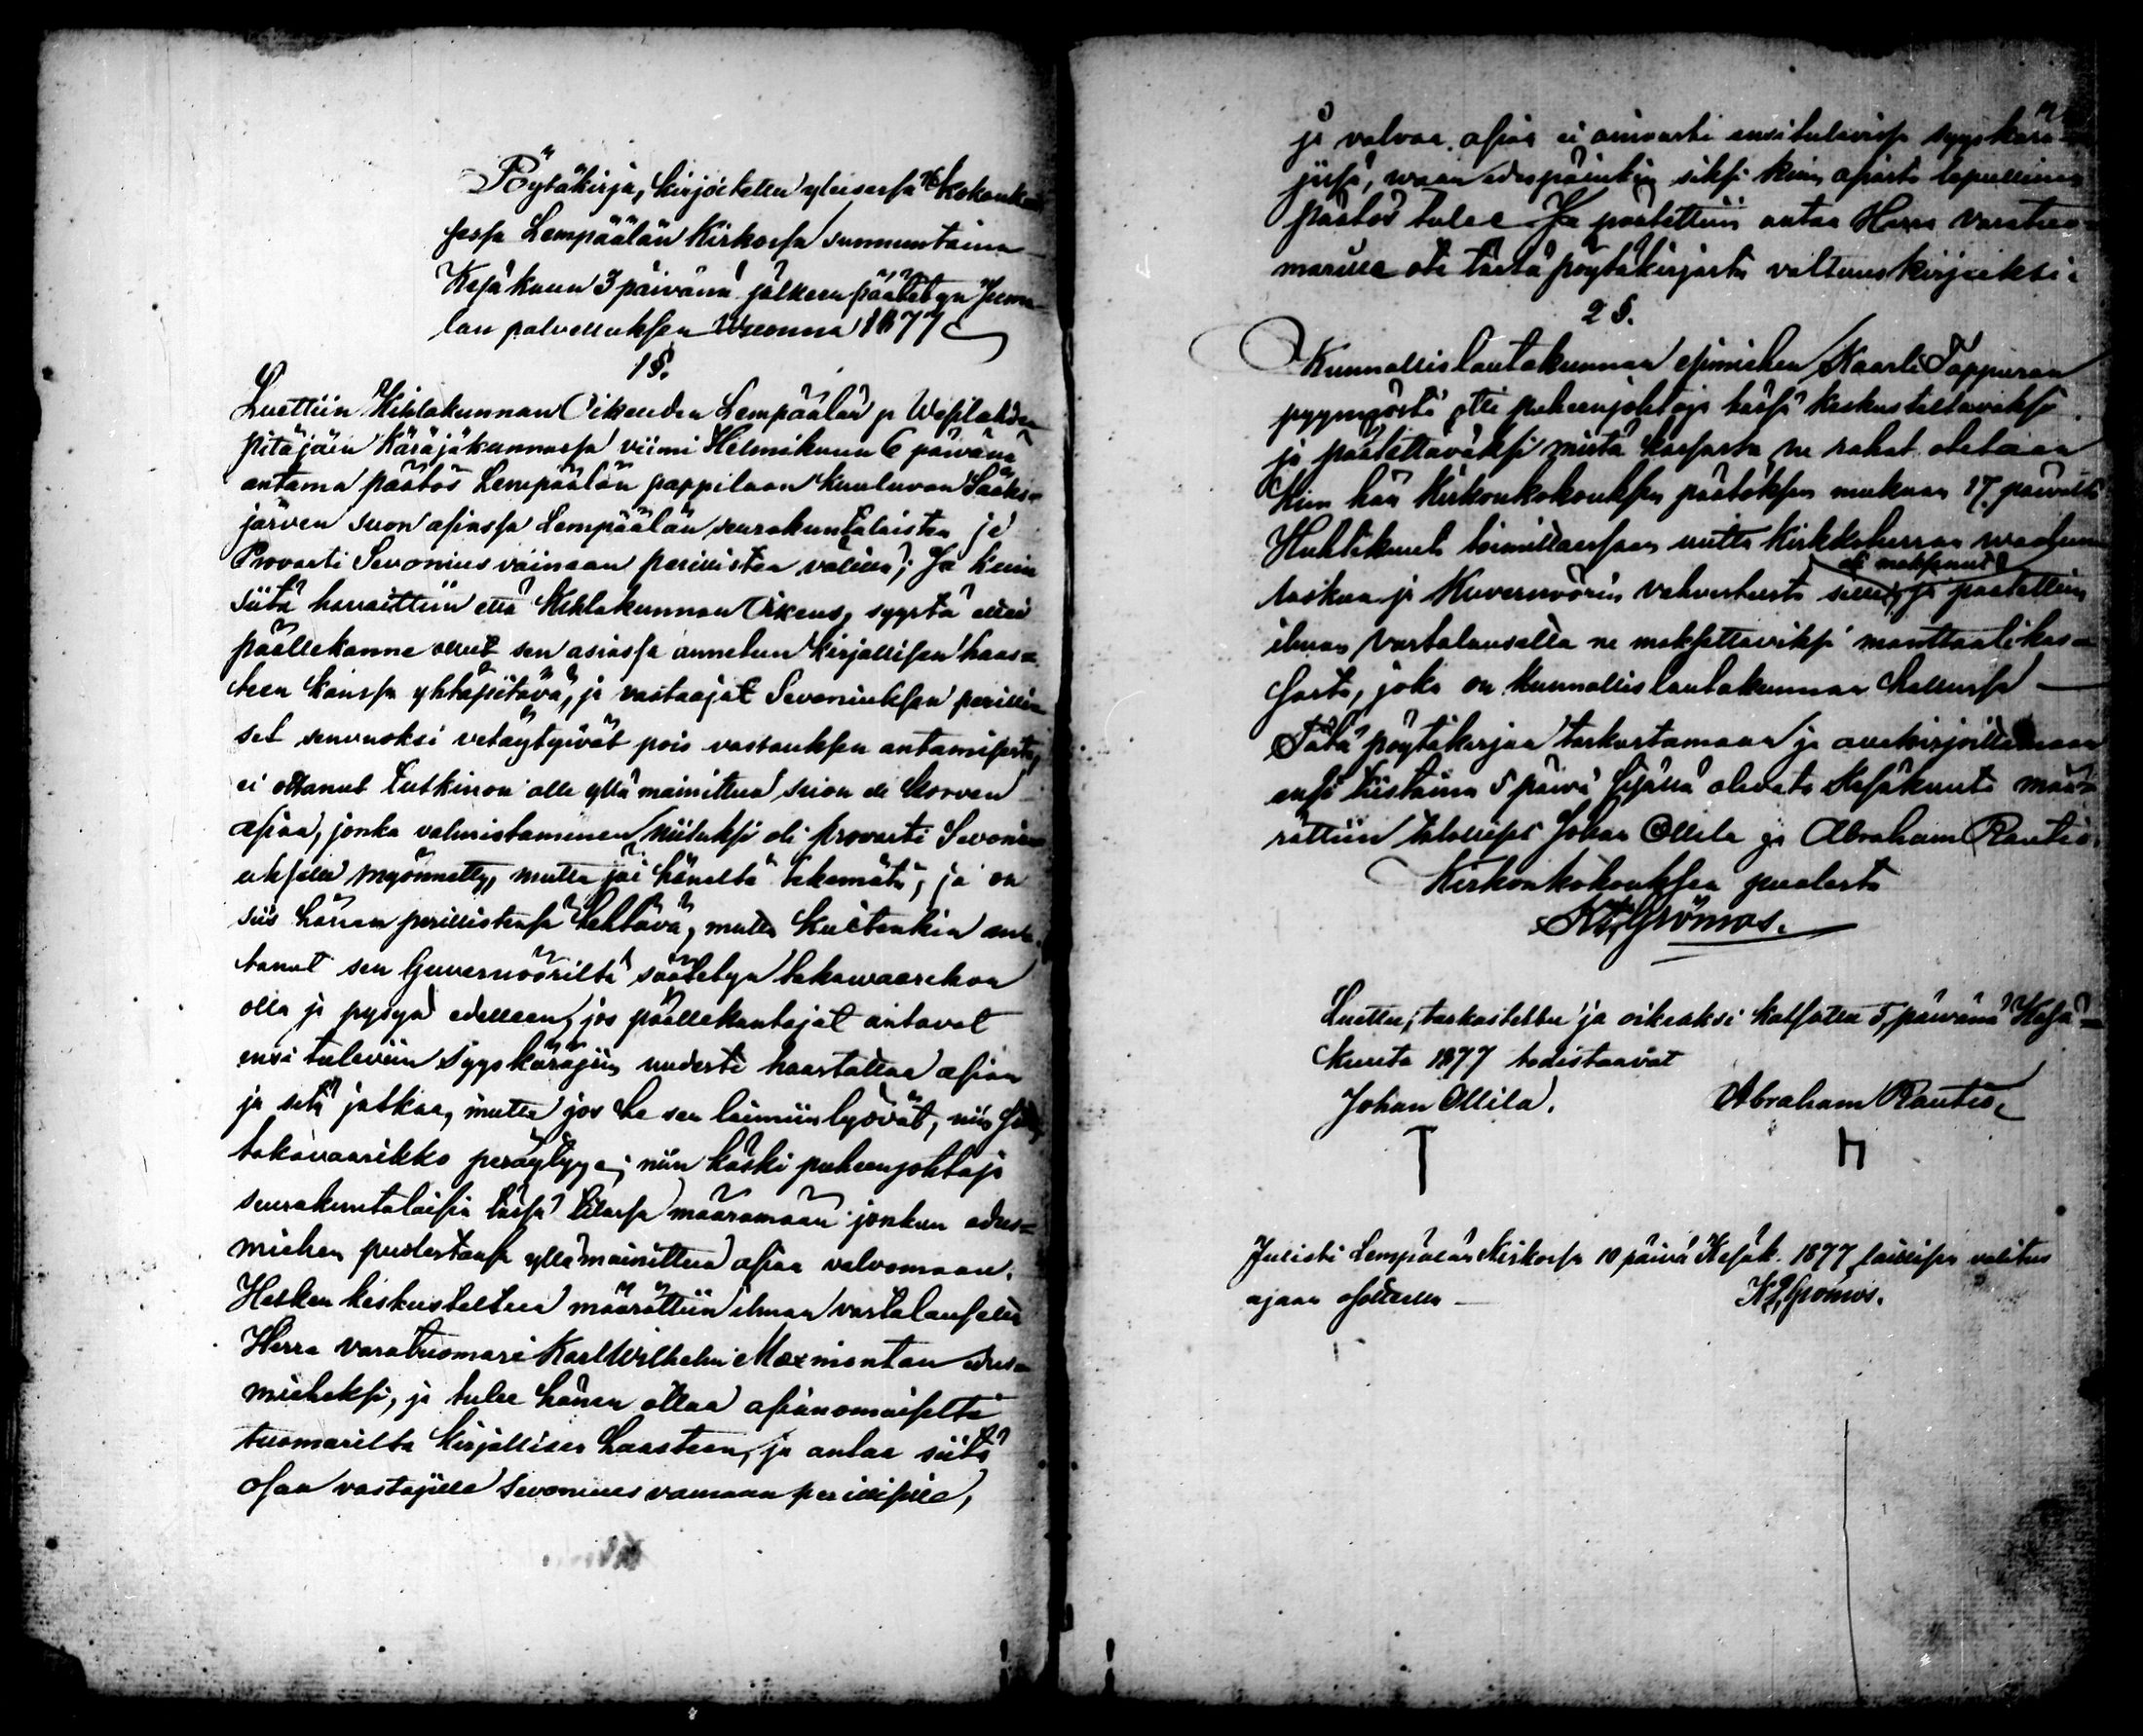 Pöytäkirja, kirjoitettu yleisessä kokouk-
sessa Lempäälän Kirkossa sunnuntaina
Kesäkuun 3 päivänä jälkeen päätetyn Juma-
lan palvelluksen Wuonna 1877
1 §.
Luettiin Kihlakunnan Oikeuden Lempäälän ja Wesilahden
pitäjäin Käräjäkunnassa viimi Helmikuun 6 päivänä
antama päätös Lempäälän pappilaan kuuluvan Sääks-
järven suon asiassa Lempäälän seurakuntalaisten ja
Provasti Sevonius vainaan perillisten välillä; Ja kuin
siitä havaittiin että Kihlakunnan Oikeus, syystä ettei
päällekanne ollut sen asiassa annetun kirjallisen haas-
teen kanssa yhtäpitävä, ja vastaajat Sevoniuksen perilli-
set senvuoksi vetäytyivät pois vastauksen antamisesta,
ei ottanut tutkinon alle yllä mainittua suon eli korven
asiaa, jonka valmistaminen niituksi oli provasti Sevoni-
ukselle myönnetty, mutta jäi häneltä tekemätä, ja on
siis hänen perillistensä tehtävä, mutta kuitenkin an-
tanut sen Guvernöörilta säätetyn takawaarikon
olla ja pysyä edelleen, jos päällekantajat antavat
ensi tuleviin Syyskäräjiin uudesti haastattaa asian
ja sitä jatkaa, mutta jos he sen laimiinlyövät, niin
takavaarikko peräytyy; niin käski puheenjohtaja
seurakuntalaisia tässä tilassa määrämään jonkun edus-
miehen puolestansa yllämainittua asiaa valvomaan.
Hetken keskusteltua määrättiin ilman vastalausetta
Herra varatuomari Karl Wilhelm Maxmontan edus-
mieheksi, ja tulee hänen ottaa asianomaiselta
tuomarilta kirjallisen haasteen, ja antaa siitä
osaa vastajille Sevonius vainaan perillisille,
ja valvoa asiaa ei ainoasti ensitulevissa syyskärä-
jissä, waan edespäinkin siksi kuin asiasta lopullinen
päätös tulee. Ja päätettiin antaa Herra Varatuo-
marille ote tästä pöytäkirjasta valtuuskirjaksi.
2 §.
Kunnallislautakunnan esimiehen Kaarle Tappuran
pyynnöstä otti puheenjohtaja tässä keskusteltavaksi
ja päätettäväksi mistä kassasta ne rahat otetaan
kuin hän Kirkonkokouksen päätöksen mukaan 17 päivältä
Huhtikuuta toimittaissaan uutta Kirkkoherran waalin
laskua ja Kuvernöörin vahvistusta sille, oli maksanut ja päätettiin
ilman vastalausetta ne maksettaviksi manttaalikas-
sasta, joka on kunnallislautakunnan hallussa
Tätä pöytäkirjaa tarkastamaan ja allekirjoittamaan
ensi tiistaina 5 päivä sisällä olevata Kesäkuuta mää-
rättiin talolliset Johan Ollila ja Abraham Rautio.
Kirkonkokouksen puolesta
Grönros.
Luettu, tarkastettu ja oikeaksi katsottu 5 päivänä Kesä-
kuuta 1877 todistaavat
Johan Ollila. Abraham Rautio,
Julisti Lempälän Kirkossa 10 päivä Kesäk. 1877 laillisen valitus
ajaan Grönros.